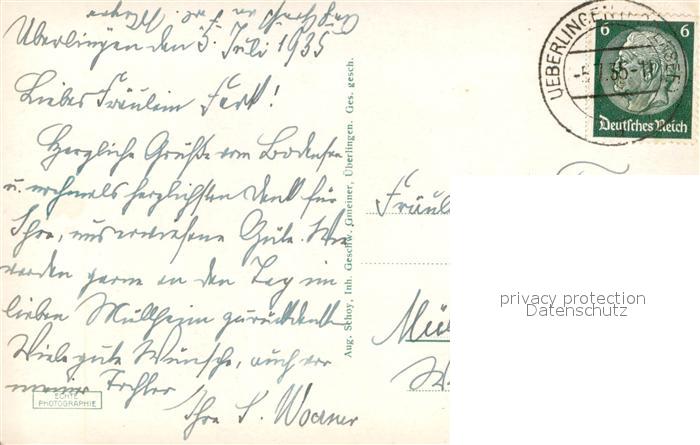 Überlingen den 5. Juli 1935
Liebes Fräulein
Herzliche Grüße vom Bodensee
u. nochmals herzlichsten Dank für
Ihre, uns erwiesene Güte. Wir
werden gerne an den Tag im
lieben Müllheim zurückdenken
Viele gute Wünsche, auch von
meiner Tochter
Ihre
ECHTE
PHOTOGRAPHIE
Aug. Schoy, Inh. Geschw. Gmeiner, Überlingen. Ges. gesch.
UEBERLINGEN
6 6
Deutsches Reich
Fräul
Mül
privacy protection
Datenschutz